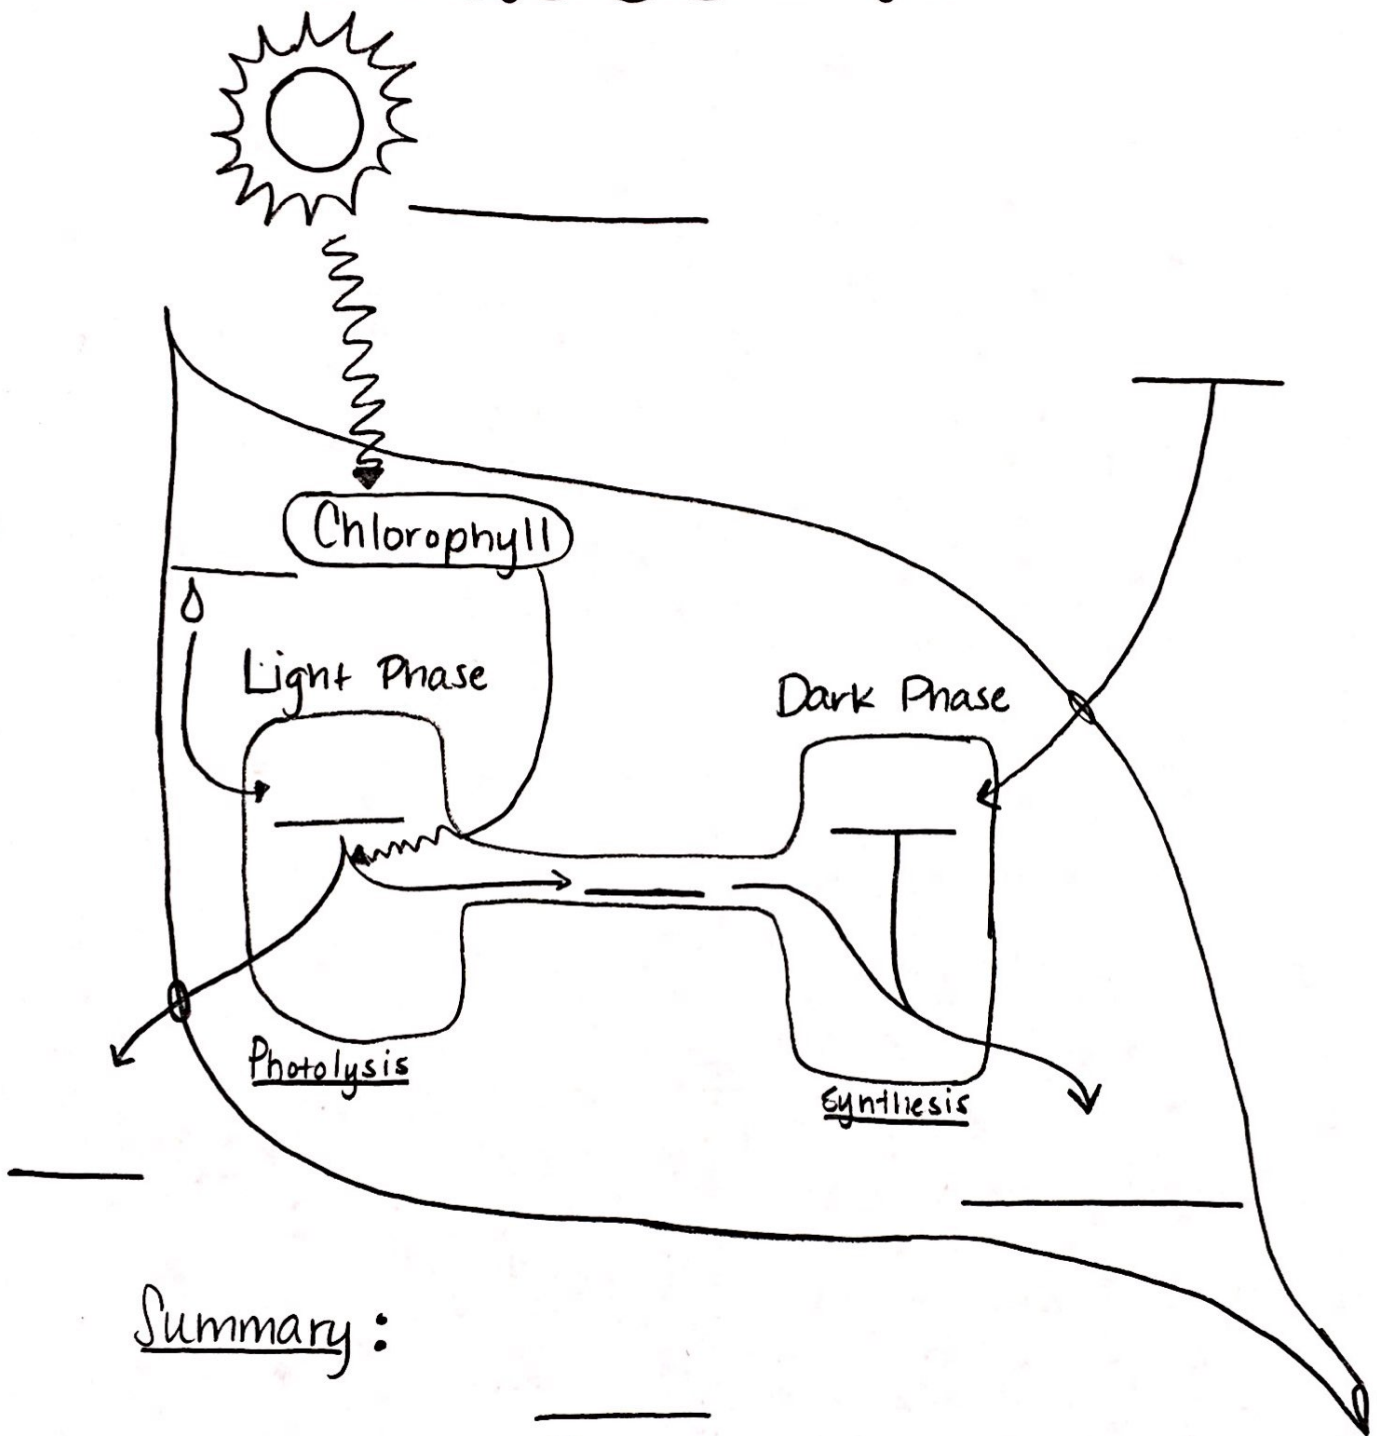 Chlorophyll
Light Phase
Dark Phase
Photolysis
Synthesis
Summary: